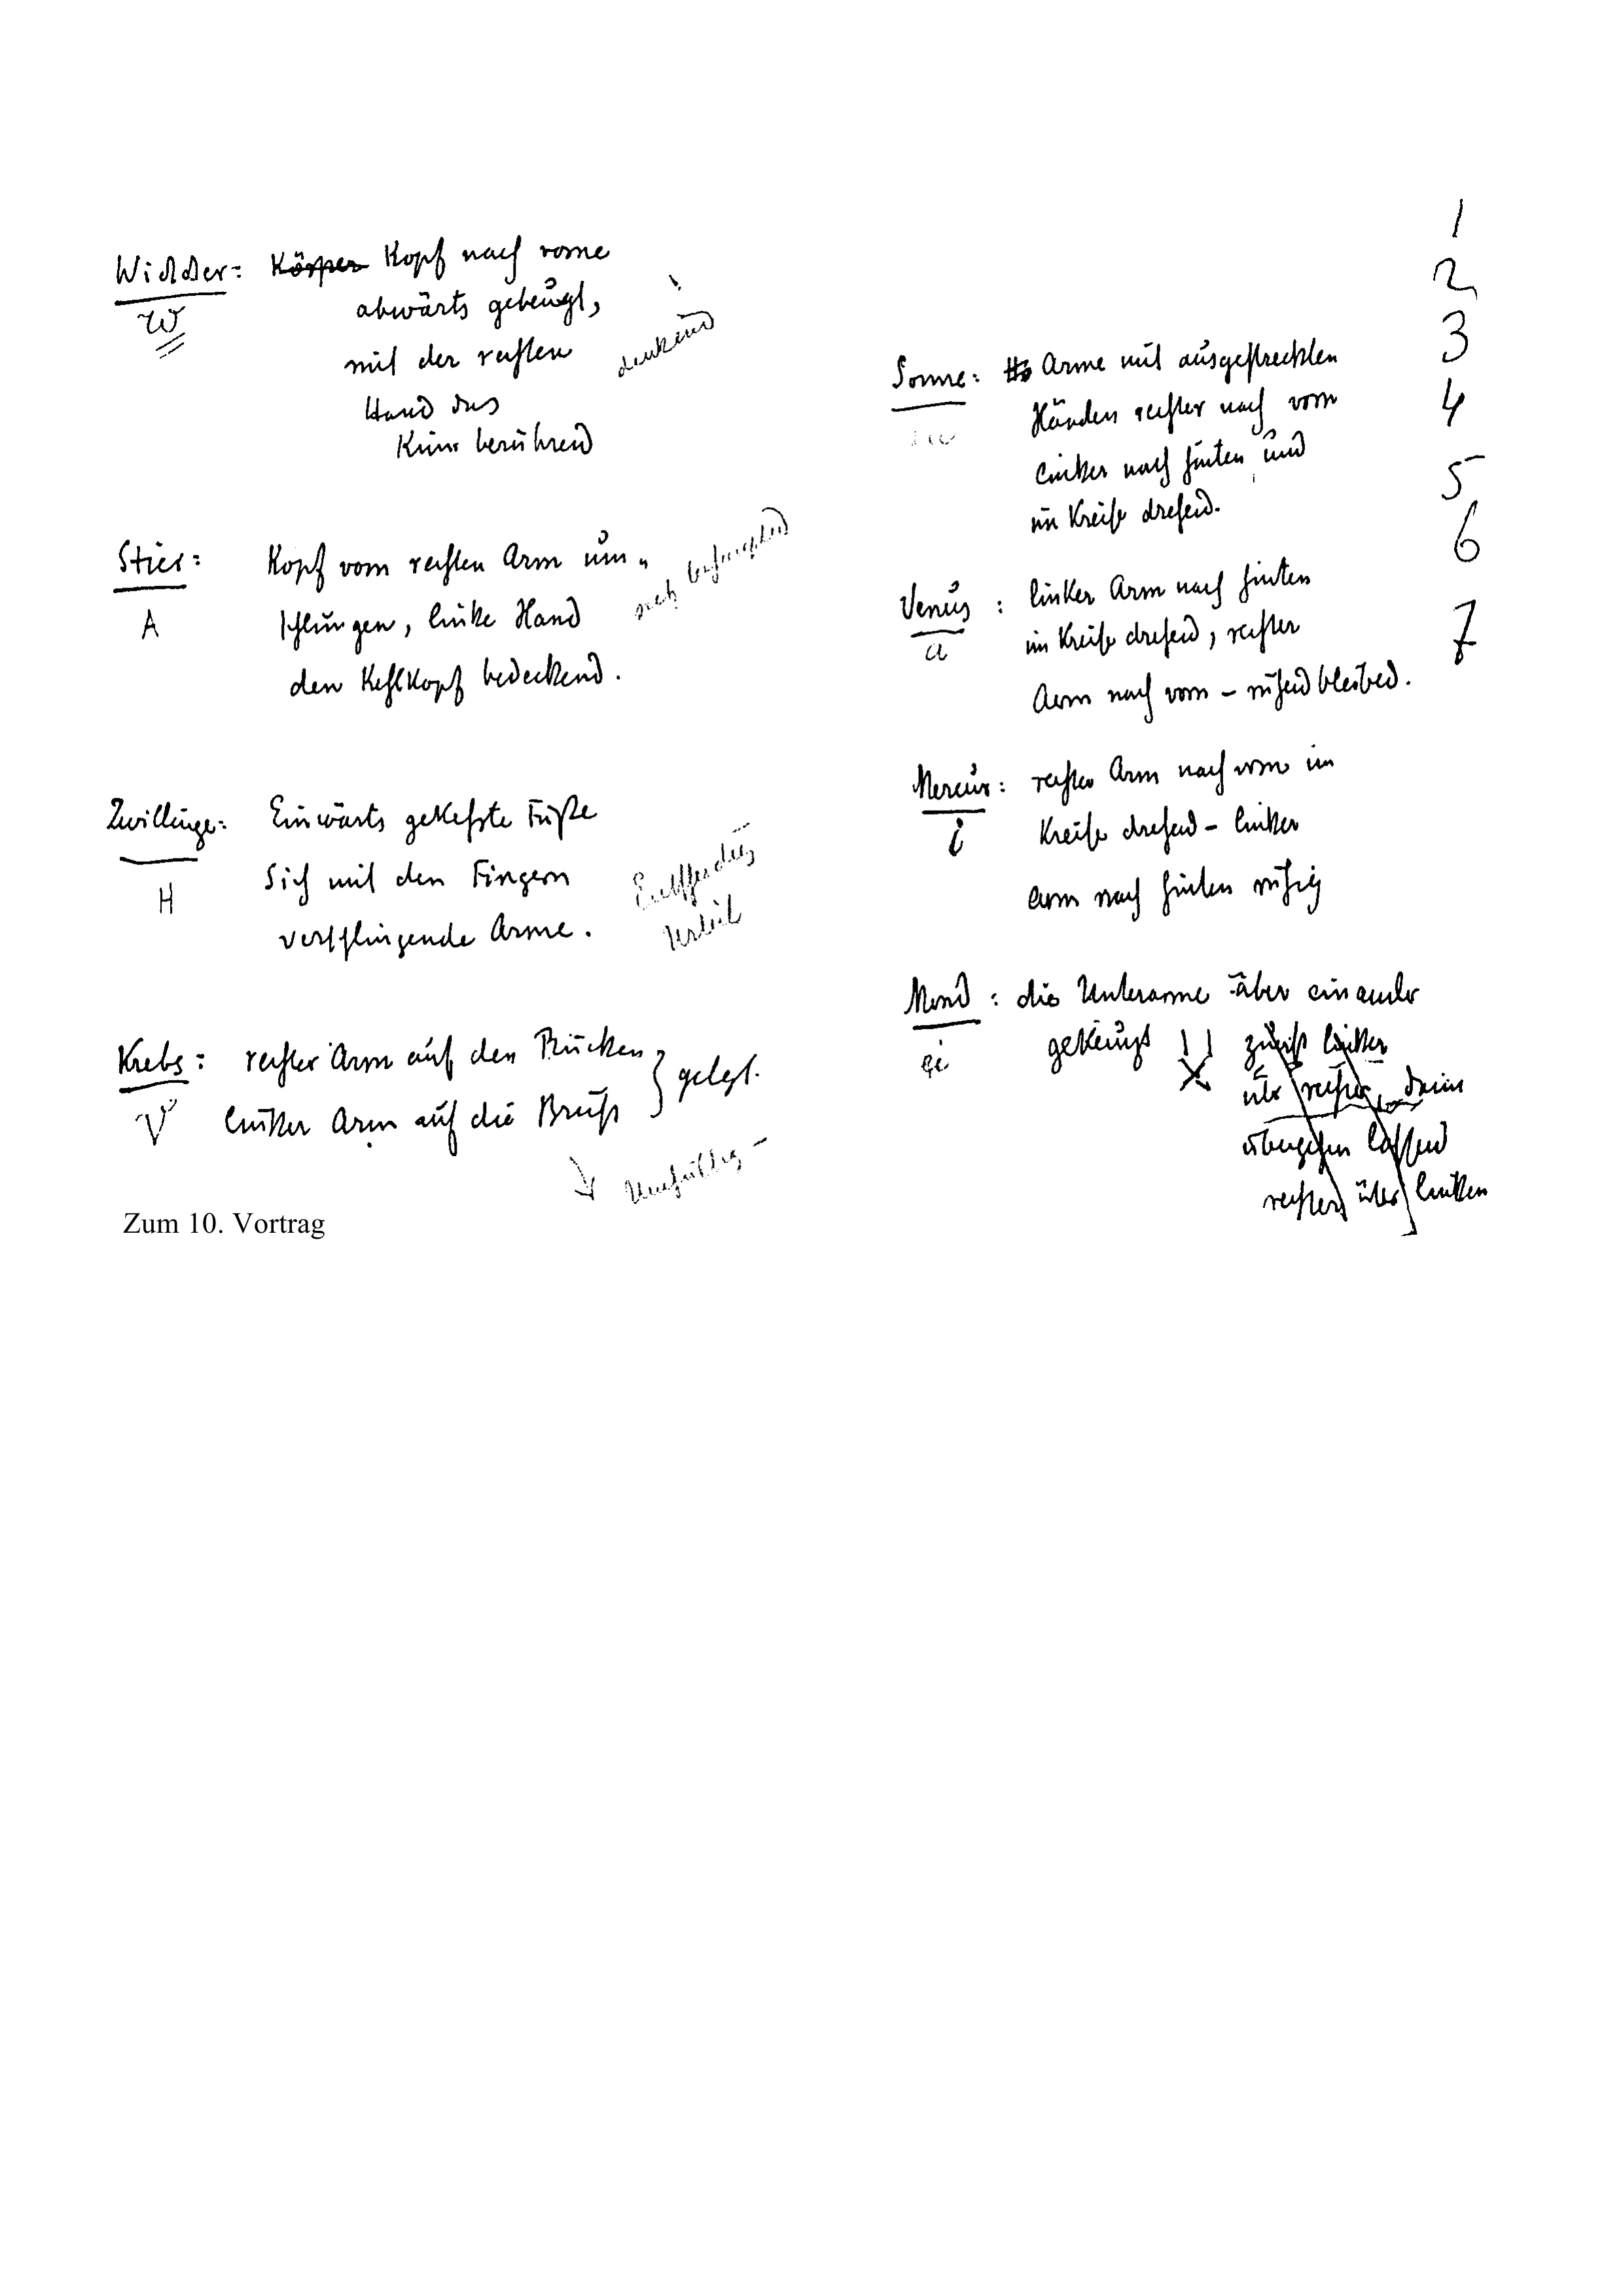 Widder: Körper Kopf nach vorne
W
abwärts gebeugt,
mit der rechten
Hand das
Kinn berührend
denkend
!
Stier: Kopf vom rechten Arm um-
A
schlungen, linke Hand
den Kehlkopf bedeckend.
sich
Zwillinge: Einwärts gekehrte Füße
H
Sich mit den Fingern
verschlingende Arme.
Urteil
Krebs: rechter Arm auf den Rücken
V
linker Arm auf die Brust
} gelegt.
Zum 10. Vortrag
1
2
3
4
5
6
7
Sonne: Arme mit ausgestreckten
Händen rechter nach vorn
linker nach hinten und
im Kreise drehend.
Venus: linker Arm nach hinten
a
im Kreise drehend, rechter
Arm nach vorn – ruhend bleibed.
Mercur: rechter Arm nach vorn im
i
Kreise drehend – linker
Arm nach hinten ruhig
Mond: die Unterarme über einander
ei
gekreuzt !! zuerst linker
X
über rechter, dann
übergehen lassend
rechten über linken